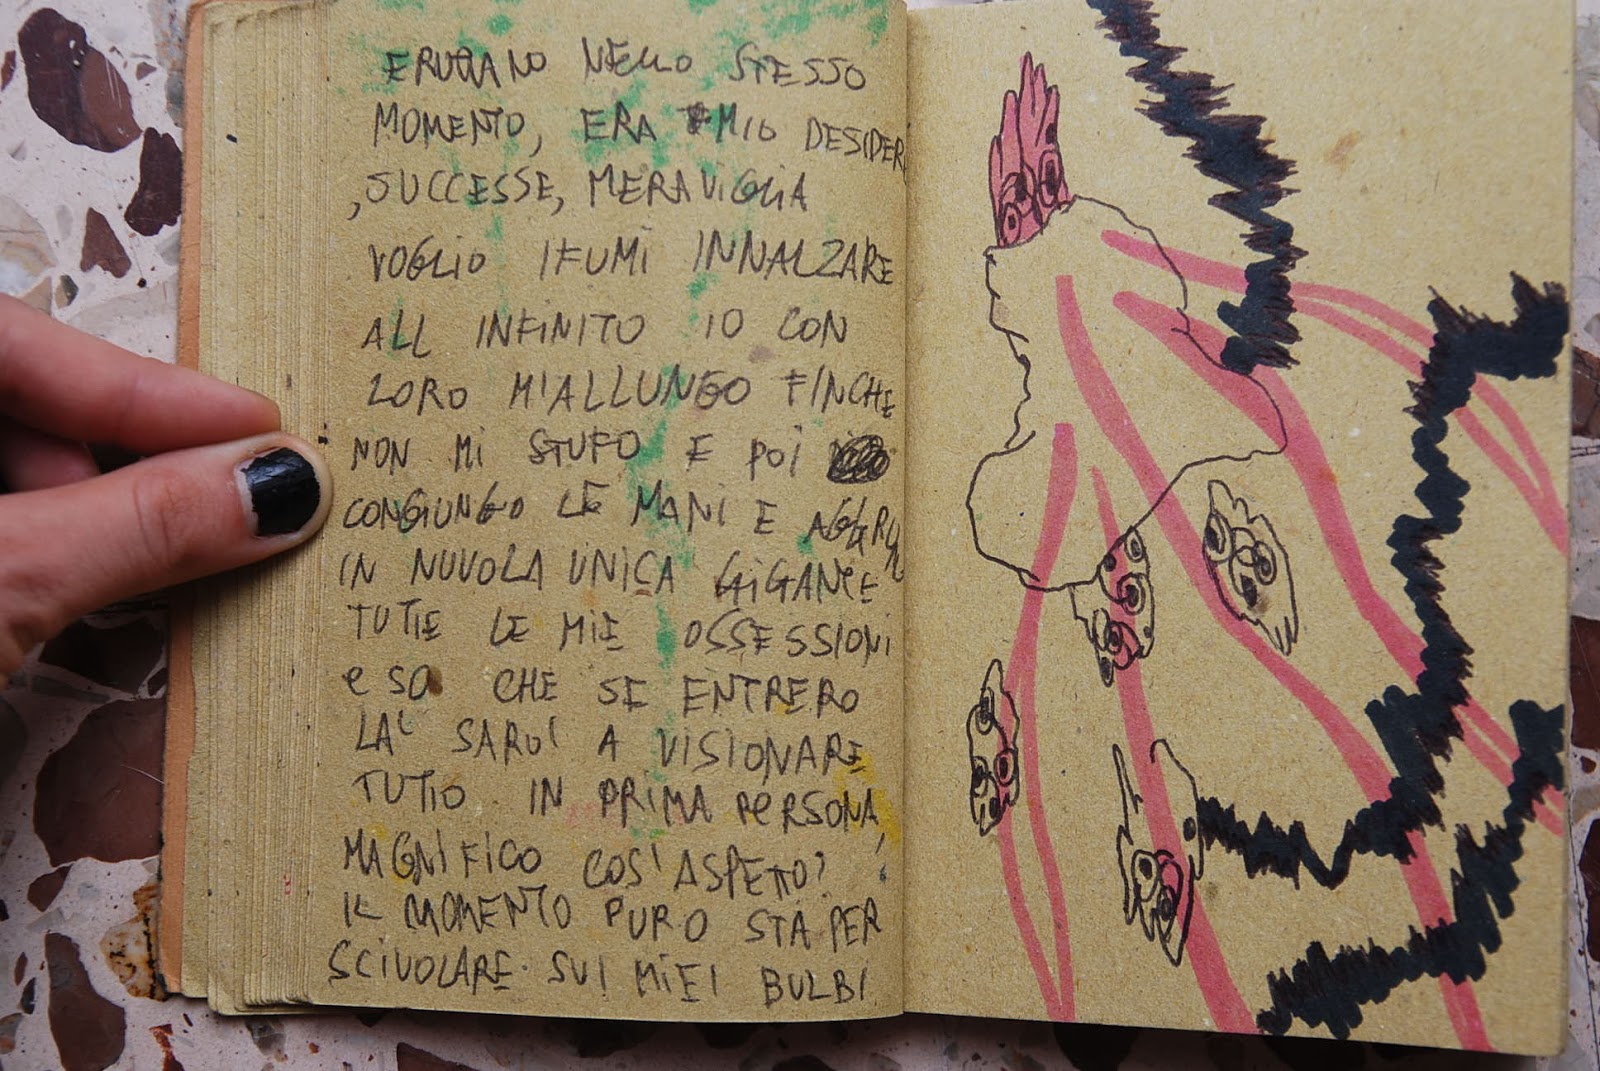 ERUTTANO NELLO STESSO
MOMENTO, ERA MIO DESIDERI
, SUCCESSE, MERAVIGLIA
VOGLIO I FUMI INNALZARE
ALL INFINITO IO CON
LORO M'ALLUNGO FINCHE
NON MI STUFO E POI
CONGIUNGO LE MANI E AGGRUN
IN NUVOLA UNICA GIGANTE
TUTTE LE MIE OSSESSIONI
e SO CHE SE ENTRERO
LA' SARO' A VISIONARE
TUTTO IN PRIMA PERSONA,
MAGNIFICO COS'ASPETTO?
IL MOMENTO PURO STA PER
SCIVOLARE SUI MIEI BULBI